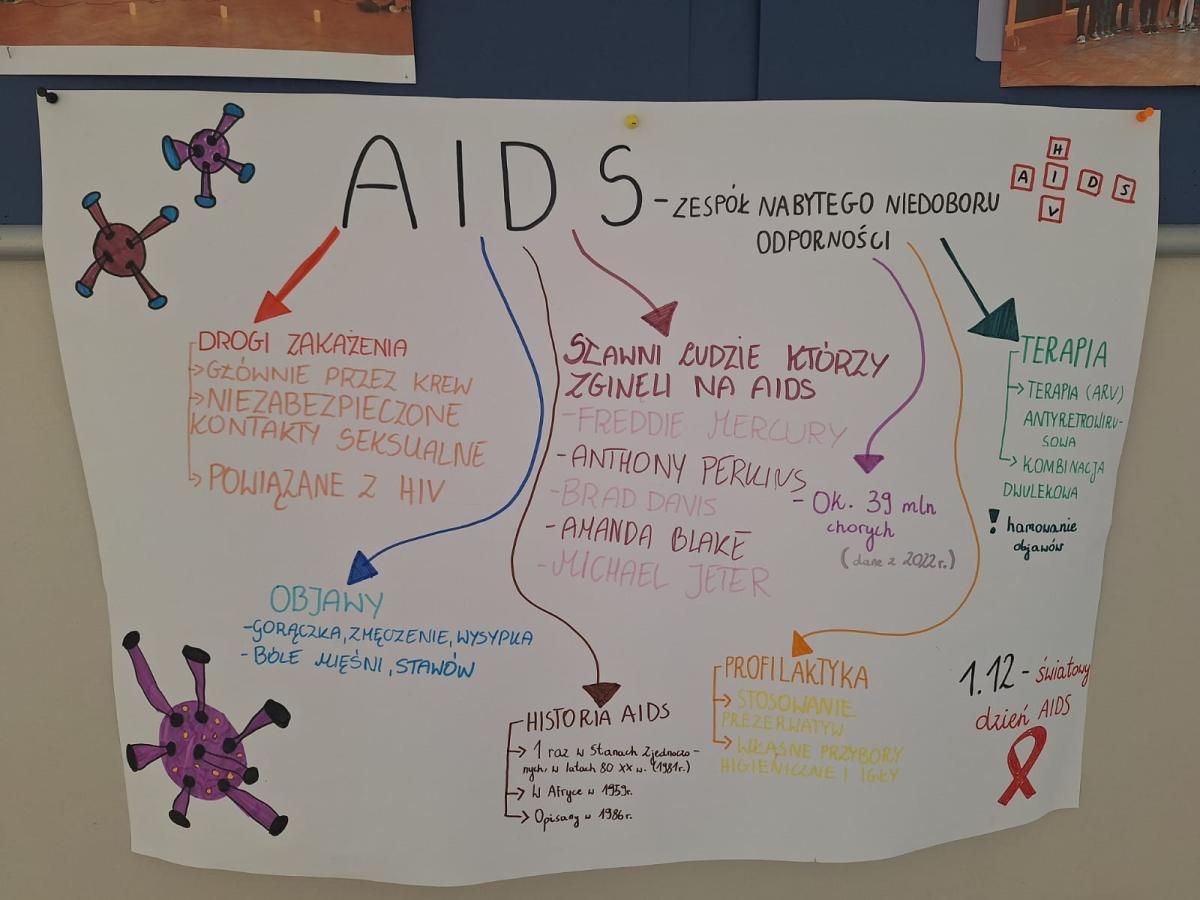 AIDS - ZESPÓŁ NABYTEGO NIEDOBORU
ODPORNOŚCI
H
A I D S
V
DROGI ZAKAŻENIA
GŁÓWNIE PRZEZ KREW
NIEZABEZPIECZONE
KONTAKTY SEKSUALNE
POWIĄZANE Z HIV
OBJAWY
-GORĄCZKA, ZMĘCZENIE, WYSYPKA
- BÓLE MIĘŚNI, STAWÓW
HISTORIA AIDS
1 raz w Stanach Zjednoczo-
nych, w latach 80 XX w. (1981r.)
W Afryce w 1959r.
Opisany w 1986r.
SŁAWNI LUDZIE KTÓRZY
ZGINĘLI NA AIDS
-FREDDIE MERCURY
-ANTHONY PERKINS
-BRAD DAVIS
-AMANDA BLAKE
-MICHAEL JETER
- Ok. 39 mln
chorych
(dane z 2022r.)
PROFILAKTYKA
STOSOWANIE
PREZERWATYW
WŁASNE PRZYBORY
HIGIENICZNE I IGŁY
TERAPIA
TERAPIA (ARV)
ANTYRETROWIRU-
SOWA
KOMBINACJA
DWULEKOWA
! hamowanie
objawów
1.12 - światowy
dzień AIDS